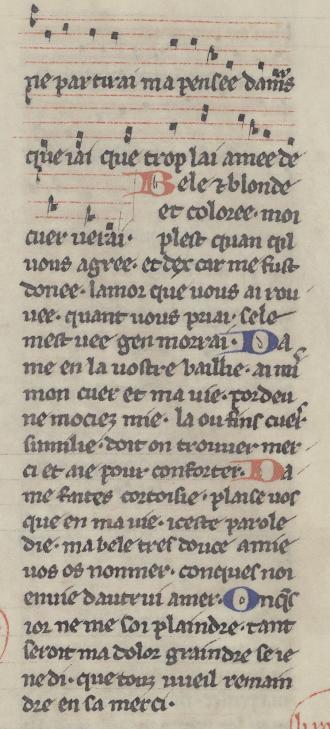 ne partirai ma pensee dams
que iai que trop lai amee de
Bele & blonde
et coloree· moi
cuer uerai· plest quan qil
uous agree· et dex car me fust
donee· lamor que uous ai rou
uee· quant uous priai· sele
mest uee gen morrai· Da
me en la uostre baillie· ai mi
mon cuer et ma uie· por deu
ne mociez mie· la ou fins cuers
sumilie· doit on trouuer mer
ci et aie pour conforter· Da
me faites cortoisie· plaise uos
que en ma uie· iceste parole
die· ma bele tres douce amie
uos os nonmer· conques noi
enuie dautrui amer· Onqs
ior ne me soi plaindre· tant
seroit ma dolor graindre se ie
ne di· que touz uueil remain
dre en sa merci·